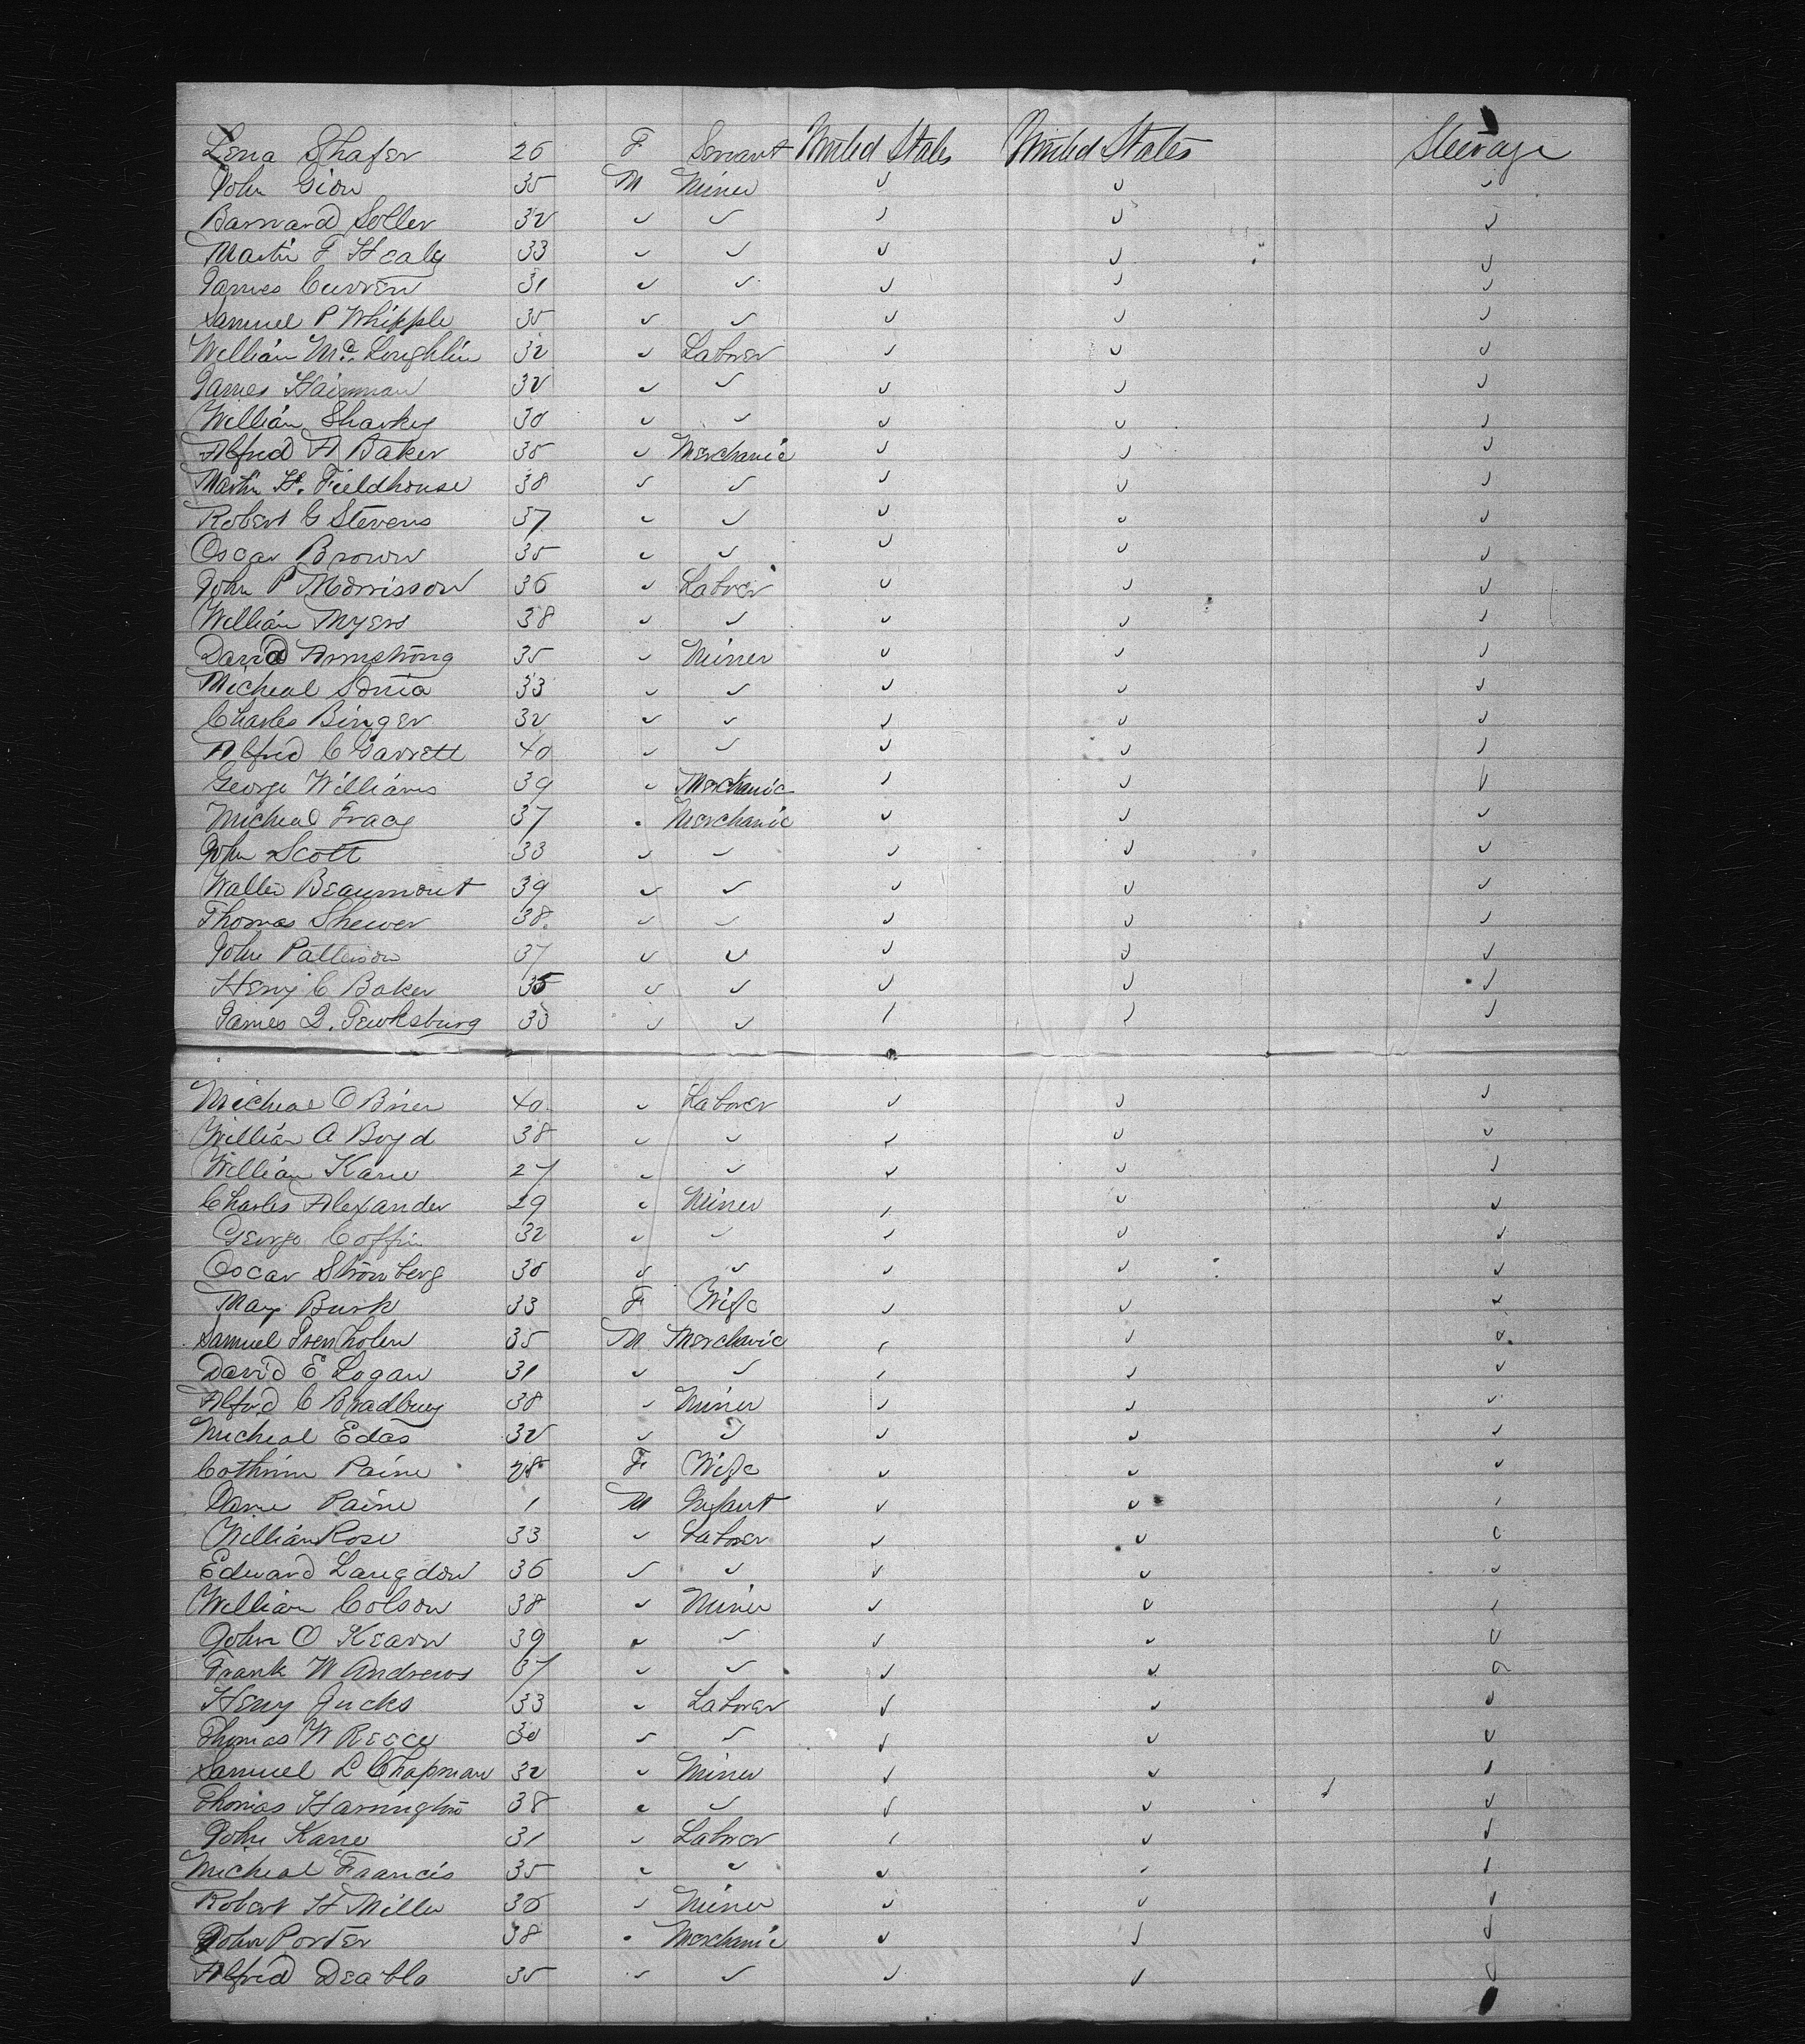 Lena Shafer 26 F Servant United States United States Steerage
John Gion 35 M Miner ✓ ✓ ✓
Barnard Soller 32 ✓ ✓ ✓ ✓ ✓
Martin F Healy 33 ✓ ✓ ✓ ✓ ✓
James Curren 31 ✓ ✓ ✓ ✓ ✓
Samuel P Whipple 35 ✓ ✓ ✓ ✓ ✓
William Mc Loughlin 32 ✓ Laborer ✓ ✓ ✓
James Hainman 32 ✓ ✓ ✓ ✓ ✓
William Sharkey 30 ✓ ✓ ✓ ✓ ✓
Alfred A Baker 35 ✓ Merchanic ✓ ✓ ✓
Martin H. Fieldhouse 38 ✓ ✓ ✓ ✓ ✓
Robert G Stevens 37 ✓ ✓ ✓ ✓ ✓
Oscar Brown 35 ✓ ✓ ✓ ✓ ✓
John P Morrisson 36 ✓ Laborer ✓ ✓ ✓
William Myers 38 ✓ ✓ ✓ ✓ ✓
David Armstrong 35 ✓ Miner ✓ ✓ ✓
Micheal 33 ✓ ✓ ✓ ✓ ✓
Charles Binger 32 ✓ ✓ ✓ ✓ ✓
Alfred C Garrett 40 ✓ ✓ ✓ ✓ ✓
George Williams 39 ✓ Merchanic ✓ ✓ ✓
Micheal Tracy 37 ✓ Merchanic ✓ ✓ ✓
John Scott 33 ✓ ✓ ✓ ✓ ✓
Walter Beaumont 39 ✓ ✓ ✓ ✓ ✓
Thomas Shewer 38. ✓ ✓ ✓ ✓ ✓
John Patterson 37 ✓ ✓ ✓ ✓ ✓
Henry C Baker 35 ✓ ✓ ✓ ✓ ✓
James D. Tewksburg 33 ✓ ✓ ✓ ✓ ✓
Micheal O Brien 40 ✓ Laborer ✓ ✓ ✓
William A Boyd 38 ✓ ✓ ✓ ✓ ✓
William Kane 27 ✓ ✓ ✓ ✓ ✓
Charles Alexander 29 ✓ Miner ✓ ✓ ✓
George Coffin 32 ✓ ✓ ✓ ✓ ✓
Oscar Stromberg 30 ✓ ✓ ✓ ✓ ✓
Mary Burk 33 F Wife ✓ ✓ ✓
Samuel Trenholen 35 M Merchanic ✓ ✓ ✓
David E Logan 31 ✓ ✓ ✓ ✓ ✓
Alfred C Bradbury 38 ✓ Miner ✓ ✓ ✓
Micheal Edas 32 ✓ ✓ ✓ ✓ ✓
Cothrine Paine 28 F Wife ✓ ✓ ✓
Paine 1 M Infant ✓ ✓ ✓
William Rose 33 ✓ Laborer ✓ ✓ ✓
Edward Langdon 36 ✓ ✓ ✓ ✓ ✓
William Colson 38 ✓ Miner ✓ ✓ ✓
John O Kearn 39 ✓ ✓ ✓ ✓ ✓
Frank W Andrews 37 ✓ ✓ ✓ ✓ ✓
Henry Jucks 33 ✓ Laborer ✓ ✓ ✓
Thomas W Reecy 30 ✓ ✓ ✓ ✓ ✓
Samuel L Chapman 32 ✓ Miner ✓ ✓ ✓
Thomas Harrington 38 ✓ ✓ ✓ ✓ ✓
John Kane 31 ✓ Laborer ✓ ✓ ✓
Micheal Francis 35 ✓ ✓ ✓ ✓ ✓
Robert H Miller 36 ✓ Miner ✓ ✓ ✓
John Porter 38 ✓ Merchanic ✓ ✓ ✓
Alfred Deablo 35 ✓ ✓ ✓ ✓ ✓